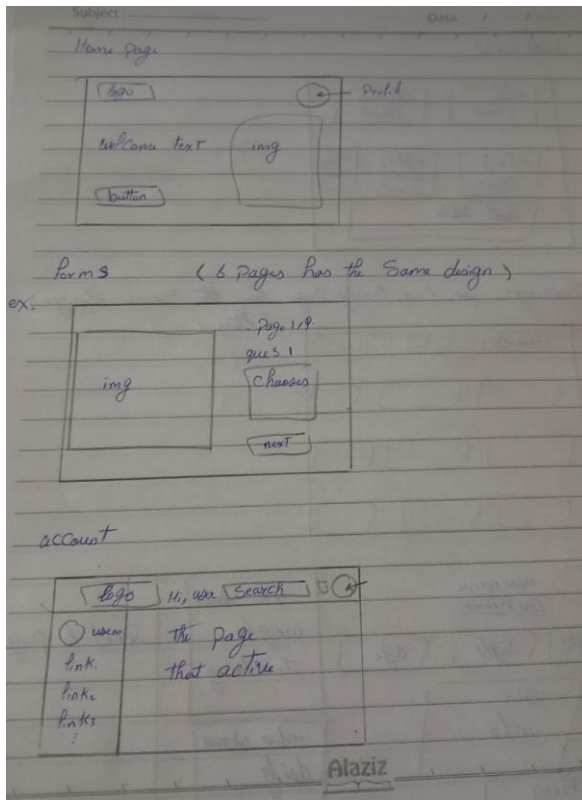 Subject:
Date / /
Home Page
logo
Profil
welcome text
img
button
forms ( 6 pages has the Same design )
ex.
Page 1,9.
ques 1
img
Chooses
next
account
logo Hi, user Search
user
the page
link.
that active
link2
link3
Alaziz